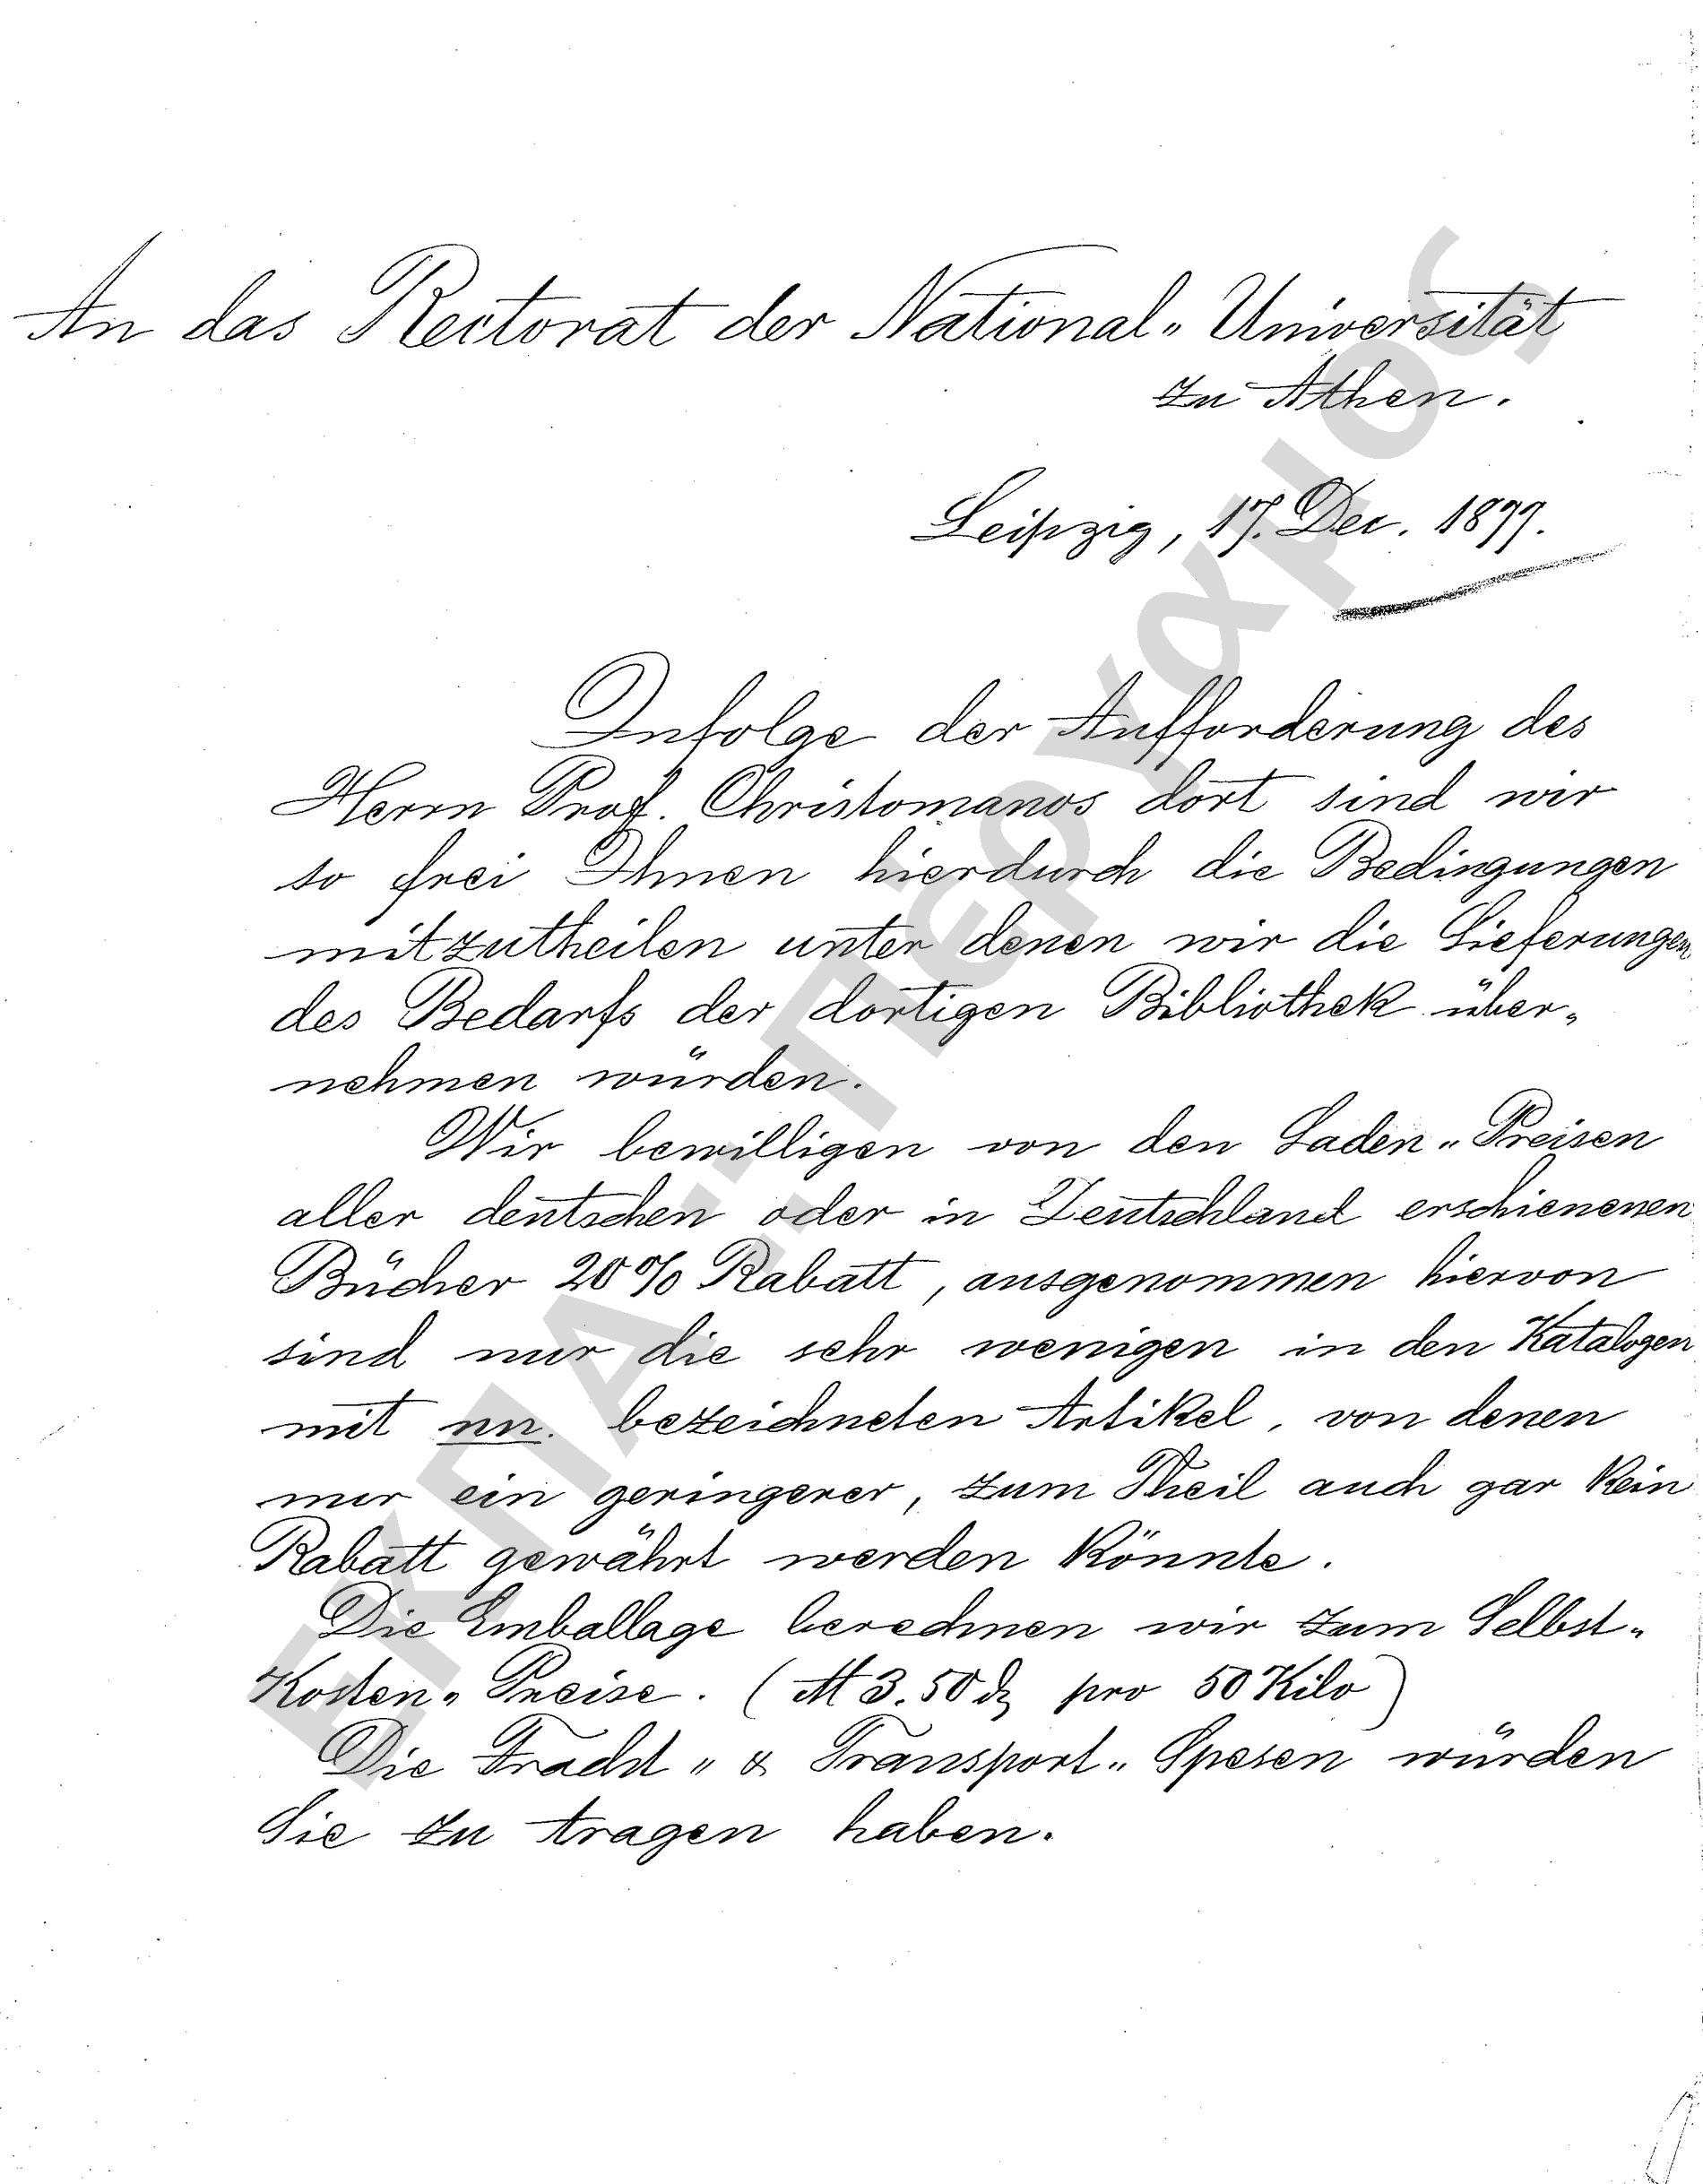 An das Rectorat der National„Universität
zu Athen.
Leipzig, 17. Dec. 1899.
Infolge der Aufforderung des
Herrn Prof. Christomanos dort sind wir
so frei Ihnen hierdurch die Bedingungen
mitzutheilen unter denen wir die Lieferungen
des Bedarfs der dortigen Bibliothek über„
nehmen würden.
Wir bewilligen von den Laden„Preisen
aller deutschen oder in Deutschland erschienenen
Bücher 20% Rabatt, ausgenommen hiervon
sind nur die sehr wenigen in den Katalogen
mit nn. bezeichneten Artikel, von denen
nur ein geringerer, zum Theil auch gar kein
Rabatt gewährt werden könnte.
Die Emballage berechnen wir zum Selbst„
Kosten„Preise. (M 3.50 d pro 50 Kilo)
Die Fracht„ & Transport„Spesen würden
Sie zu tragen haben.
ΕΚΠΑ: Πέργαμος